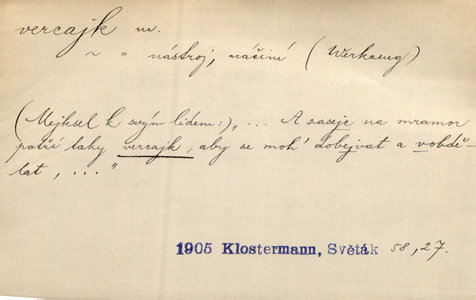 vercajk m.
~ = nástroj, náčiní (Werkzeug)
(Mejksel k svým lidem:) „... A zaseje na mramor
patří taky vercajk, aby se moh' dobejvat a vobdě-
lat, ..."
1905 Klostermann, Světák 58, 27.